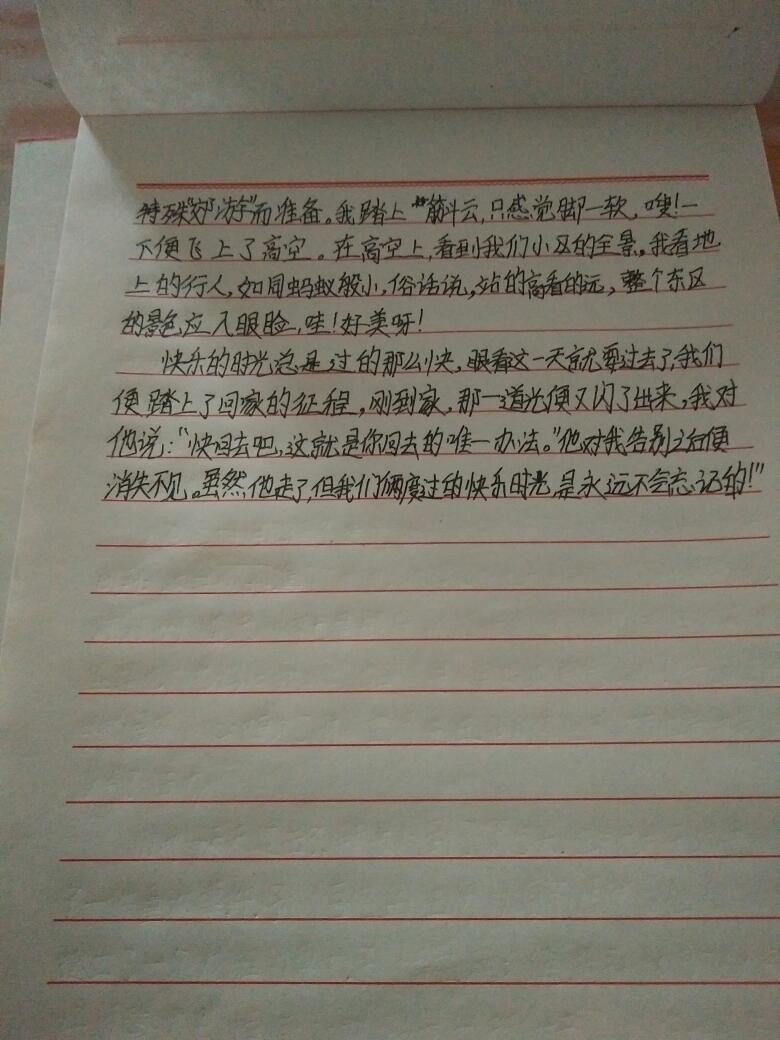 特殊"郊游"而准备。我踏上"筋斗云,只感觉脚一软,嗖!一
下便飞上了高空。在高空上,看到我们小区的全景。我看地
上的行人,如同蚂蚁般小,俗话说,站的高看的远,整个东区
的景色应入眼脸,哇!好美呀!
快乐的时光总是过的那么快,眼看这一天就要过去了,我们
便踏上了回家的征程,刚到家,那一道光便又闪了出来,我对
他说:"快回去吧,这就是你回去的唯一办法。"他对我告别之后便
消失不见。虽然他走了,但我们俩度过的快乐时光是永远不会忘记的!"